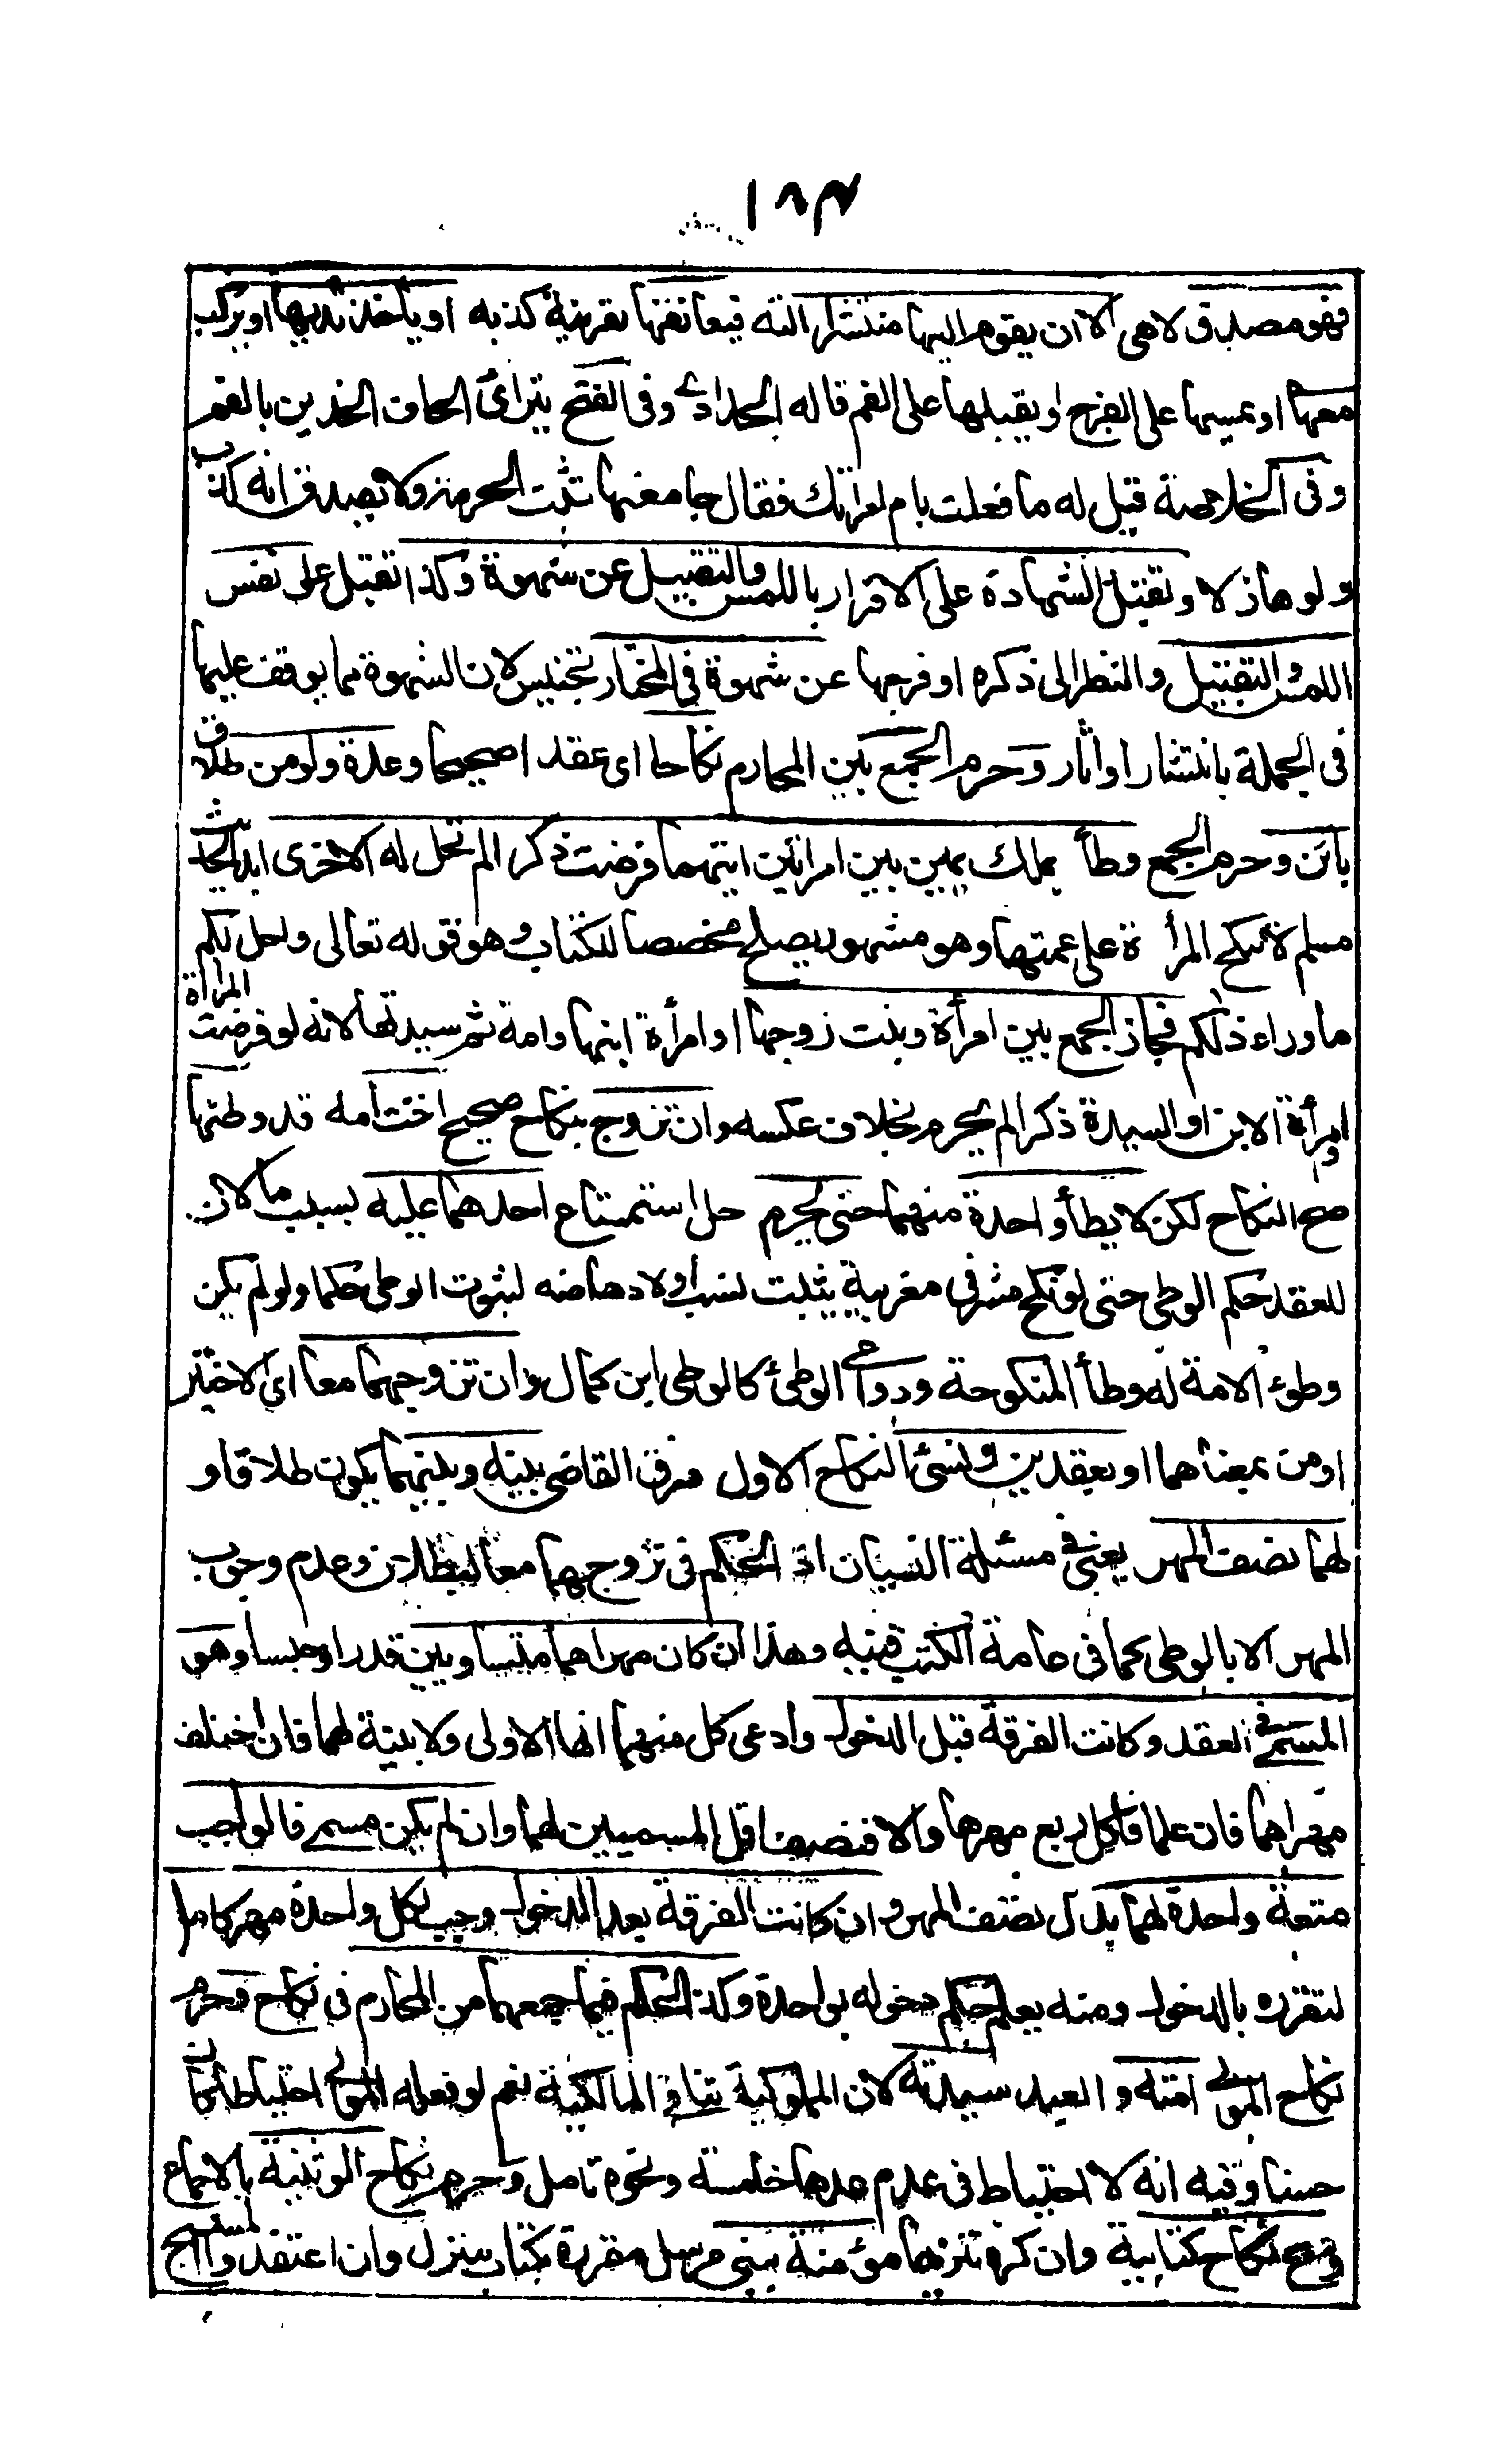 ١٨٣
فهو مصدق لا هي الا ان يقوم اليها منتشرا لته فيعانقها بقرينة كذبه او ياخذ ثديها او يركب
معها او يمسها على الفرج او يقبلها على الفم قاله الحدادي وفى الفتح يترائ الحاق الخدين بالفم
وفى الخلاصة قيل له ما فعلت بام امراتك فقال جامعتها ثبت الحرمة ولا يصدق انه كذب
ولو هازلا وتقبل الشهادة على الاقرار باللمس والتقبيل عن شهوة وكذا تقبل على نفس
اللمس والتقبيل والنظر الى ذكره او فرجها عن شهوة فى المختار تجنيس لان الشهوة مما يوقف عليها
فى الجملة بانتشار او اثار وحرم الجمع بين المحارم نكاحا اى عقدا صحيحا وعدة ولو من طلاق
بائن وحرم الجمع وطأ بملك يمين بين امراتين ايتهما فرضت ذكرا لم تحل له الاخرى ابدا لحديث
مسلم لا تنكح المرأة على عمتها وهو مشهور يصلح مخصصا للكتاب وهو قوله تعالى واحل لكم
ما وراء ذلكم فجاز الجمع بين امرأة وبنت زوجها او امرأة ابنها وامة ثم سيدتها لانه لو فرضت المرأة
او امرأة الابن او السيدة ذكرا لم يحرم بخلاف عكسه وان تزوج بنكاح صحيح اخت امه قد وطئها
صح النكاح لكن لا يطأ واحدة منهما حتى يحرم حل استمتاع احدهما عليه بسبب ما لان
للعقد حكم الوطى حتى لو نكح مشرقى مغربية يثبت نسب اولادها منه لثبوت الوطى حكما ولو لم يكن
وطوء الامة له وطأ المنكوحة ودواعى الوطئ كالوطى ابن كمال وان تزوجهما معا اى الاختين
او من بمعناهما او بعقدين ونسئ النكاح الاول فرق القاضى بينه وبينهما يكون طلاقا و
لهما نصف المهر يعنى فى مسئلة النسيان اذ الحكم فى تزوجهما معا البطلان وعدم وجوب
المهر الا بالوطى كما فى عامة الكتب فتنبه وهذا ان كان مهراهما متساويين قدرا وجنسا وهو
المسمى فى العقد وكانت الفرقة قبل الدخول وادعى كل منهما انها الاولى ولا بينة لهما فان اختلف
مهراهما فان علما فلكل ربع مهرها والا فنصف اقل المسميين لهما وان لم يكن مسمى فالواجب
متعة واحدة لهما بدل نصف المهر وان كانت الفرقة بعد الدخول وجب لكل واحدة مهر كاملا
لتقرره بالدخول ومنه يعلم حكم دخوله بواحدة وكذا الحكم فيما جمعهما من المحارم فى نكاح وحرم
نكاح المولى امته والعبد سيدته لان المملوكية تنافى المالكية نعم لو فعله المولى احتياطا كان
حسنا وفيه انه لا احتياط فى عدم عدها خامسة ونحوه تامل وحرم نكاح الوثنية بالاجماع
وصح نكاح كتابية وان كره تنزيها مؤمنة بنبى مرسل مقرة بكتاب منزل وان اعتقدوا المسيح